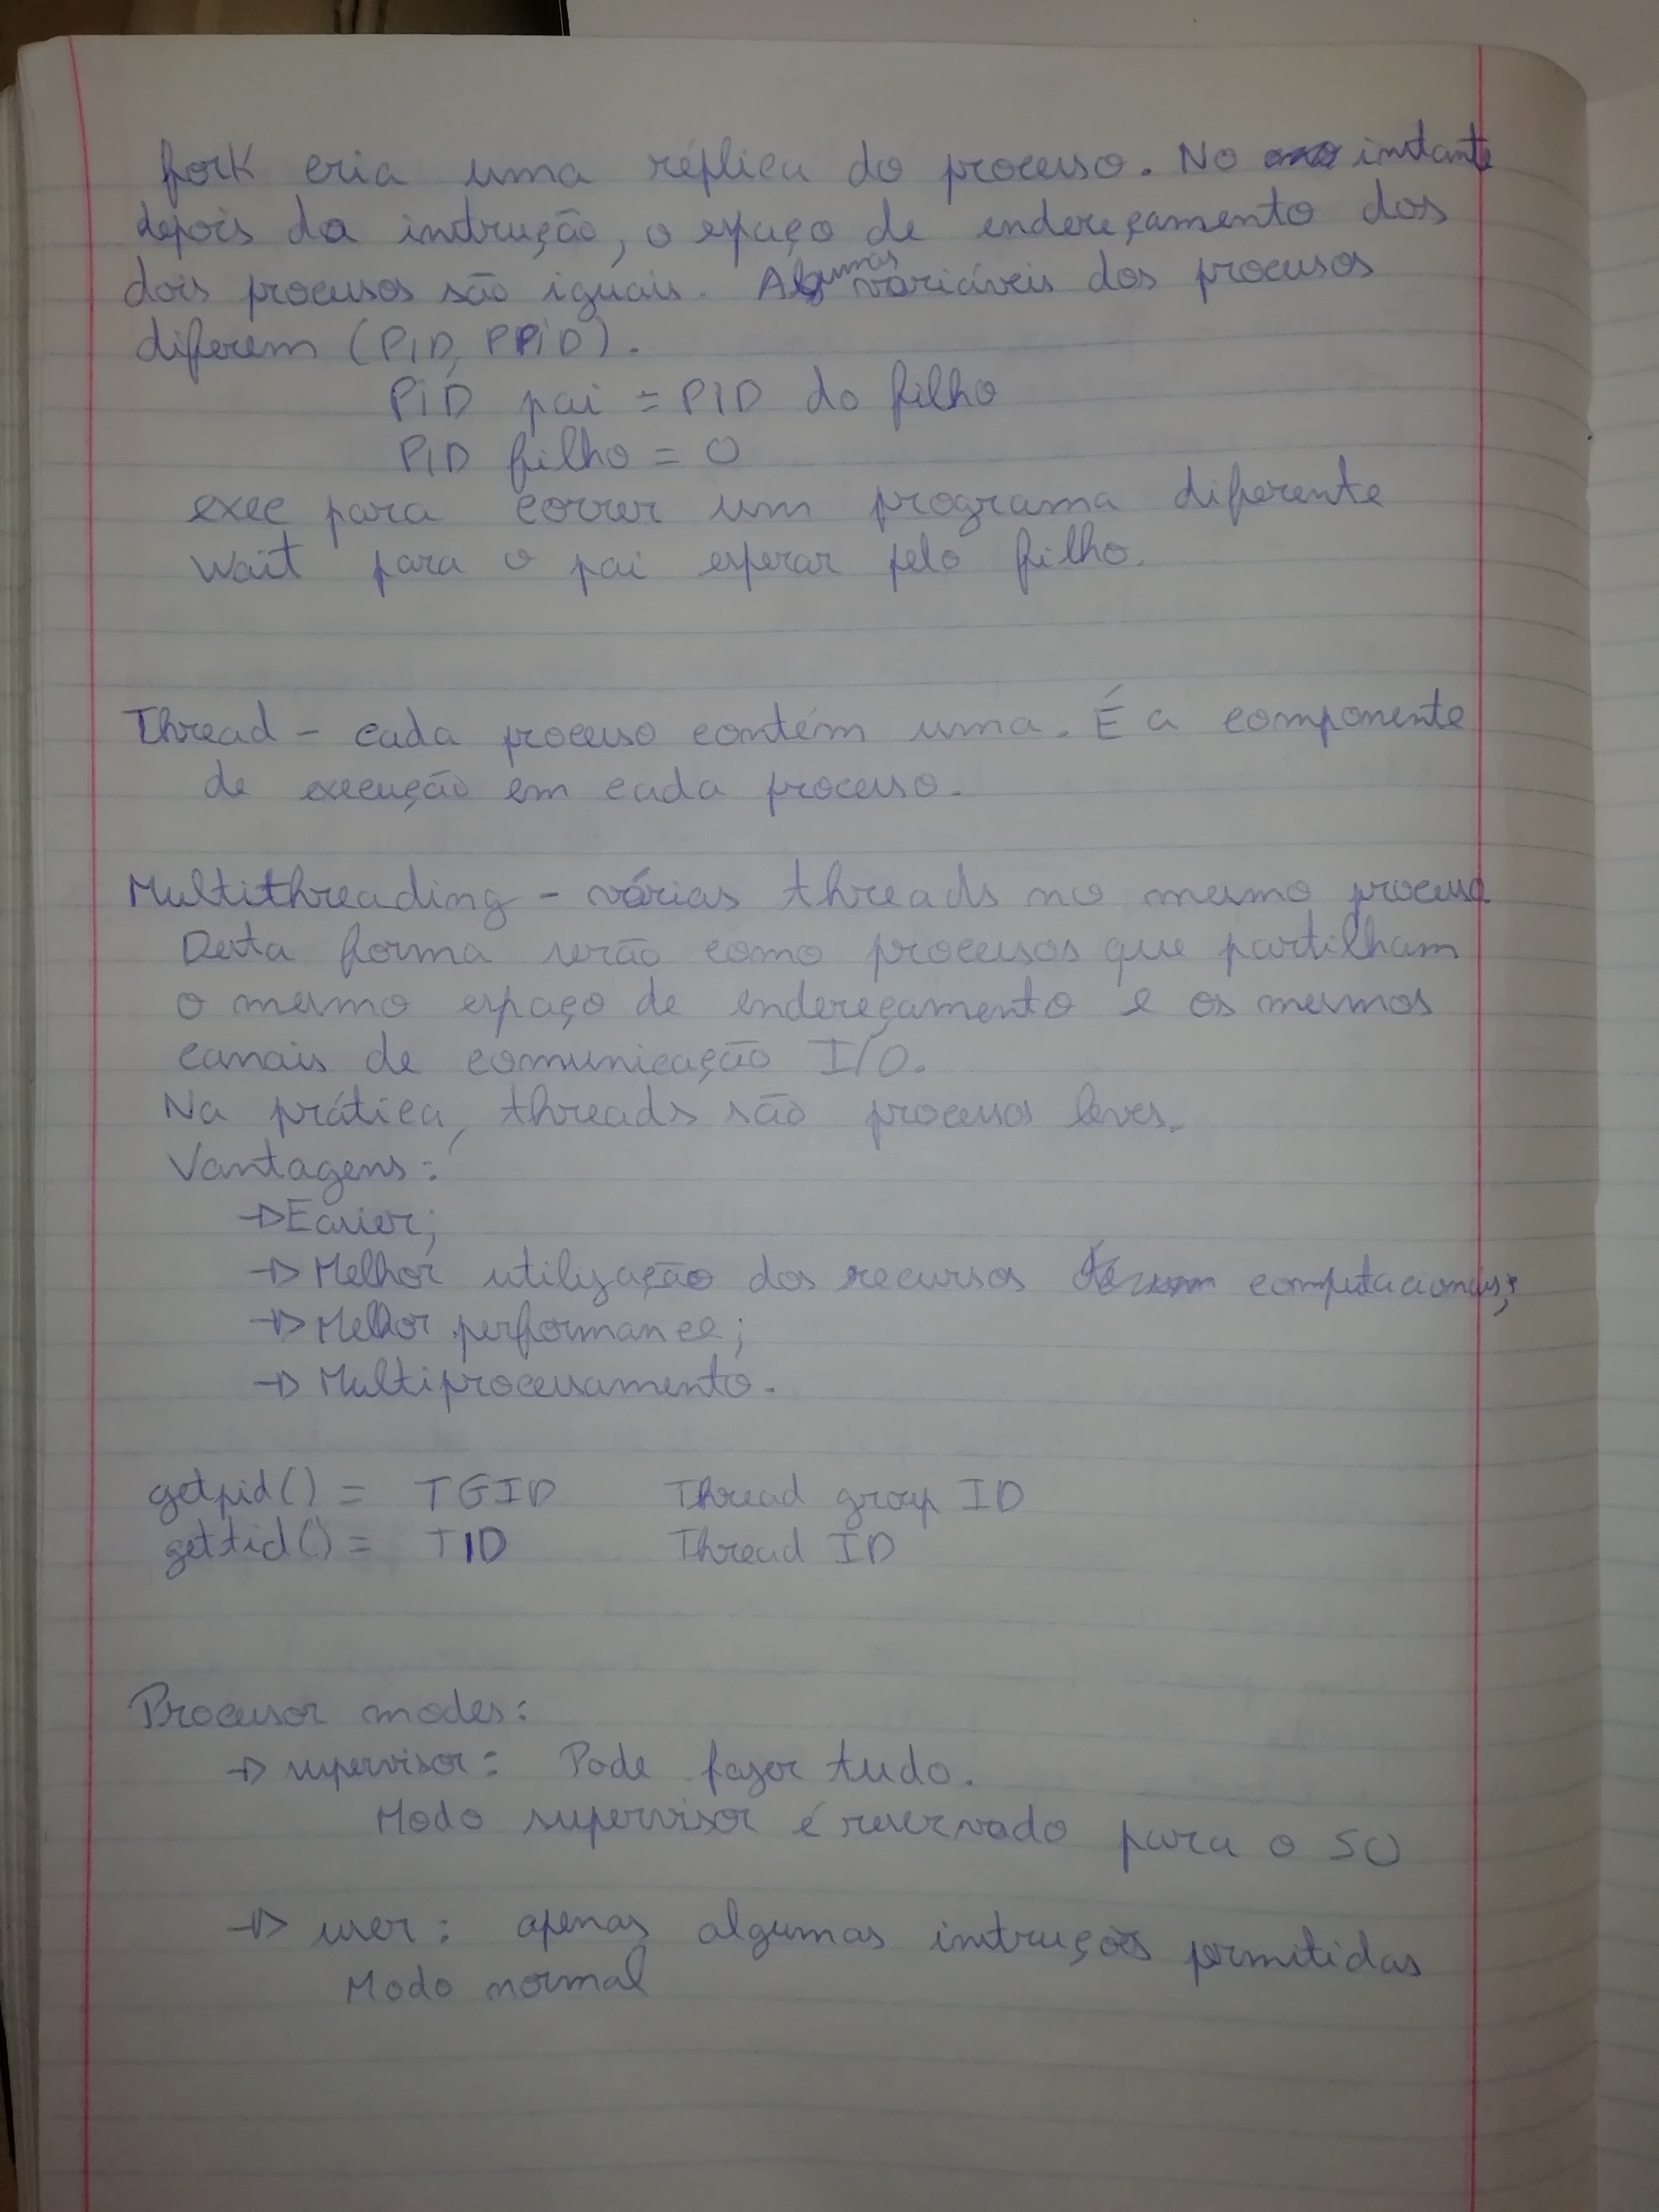 fork cria uma réplica do processo. No instante
depois da instrução, o espaço de endereçamento dos
dois processos são iguais. Algumas variáveis dos processos
diferem (PID, PPID).
PID pai = PID do filho
PID filho = 0
exec para correr um programa diferente
Wait para o pai esperar pelo filho.
Thread - cada processo contém uma. É a componente
de execução em cada processo.
Multithreading - várias threads no mesmo processo
Desta forma serão como processos que partilham
o mesmo espaço de endereçamento e os mesmos
canais de comunicação I/O.
Na prática, threads são processos leves.
Vantagens:
→ Easier;
→ Melhor utilização dos recursos computacionais;
→ Melhor performance;
→ Multiprocessamento.
getpid() = TGID Thread group ID
gettid() = TID Thread ID
Processor modes:
→ supervisor: Pode fazer tudo.
Modo supervisor é reservado para o SO
→ user: apenas algumas instruções permitidas
Modo normal